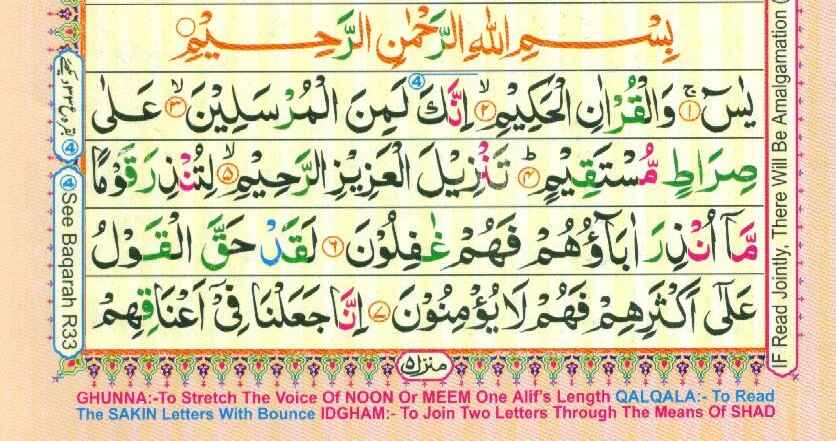 بِسْمِ اللهِ الرَّحْمٰنِ الرَّحِيْمِ
يٰسٓ ۚ﴿۱﴾ وَالْقُرْاٰنِ الْحَكِيْمِ ۙ﴿۲﴾ اِنَّكَ لَمِنَ الْمُرْسَلِيْنَ ۙ﴿۳﴾ عَلٰى
صِرَاطٍ مُّسْتَقِيْمٍ ؕ﴿۴﴾ تَنْزِيْلَ الْعَزِيْزِ الرَّحِيْمِ ۙ﴿۵﴾ لِتُنْذِرَ قَوْمًا
مَّاۤ اُنْذِرَ اٰبَآؤُهُمْ فَهُمْ غٰفِلُوْنَ ﴿۶﴾ لَقَدْ حَقَّ الْقَوْلُ
عَلٰۤى اَكْثَرِهِمْ فَهُمْ لَا يُؤْمِنُوْنَ ﴿۷﴾ اِنَّا جَعَلْنَا فِىْۤ اَعْنَاقِهِمْ
منزل ۵
④ See Baqarah R33
IF Read Jointly, There Will Be Amalgamation (
GHUNNA:-To Stretch The Voice Of NOON Or MEEM One Alif's Length QALQALA:- To Read
The SAKIN Letters With Bounce IDGHAM:- To Join Two Letters Through The Means Of SHAD